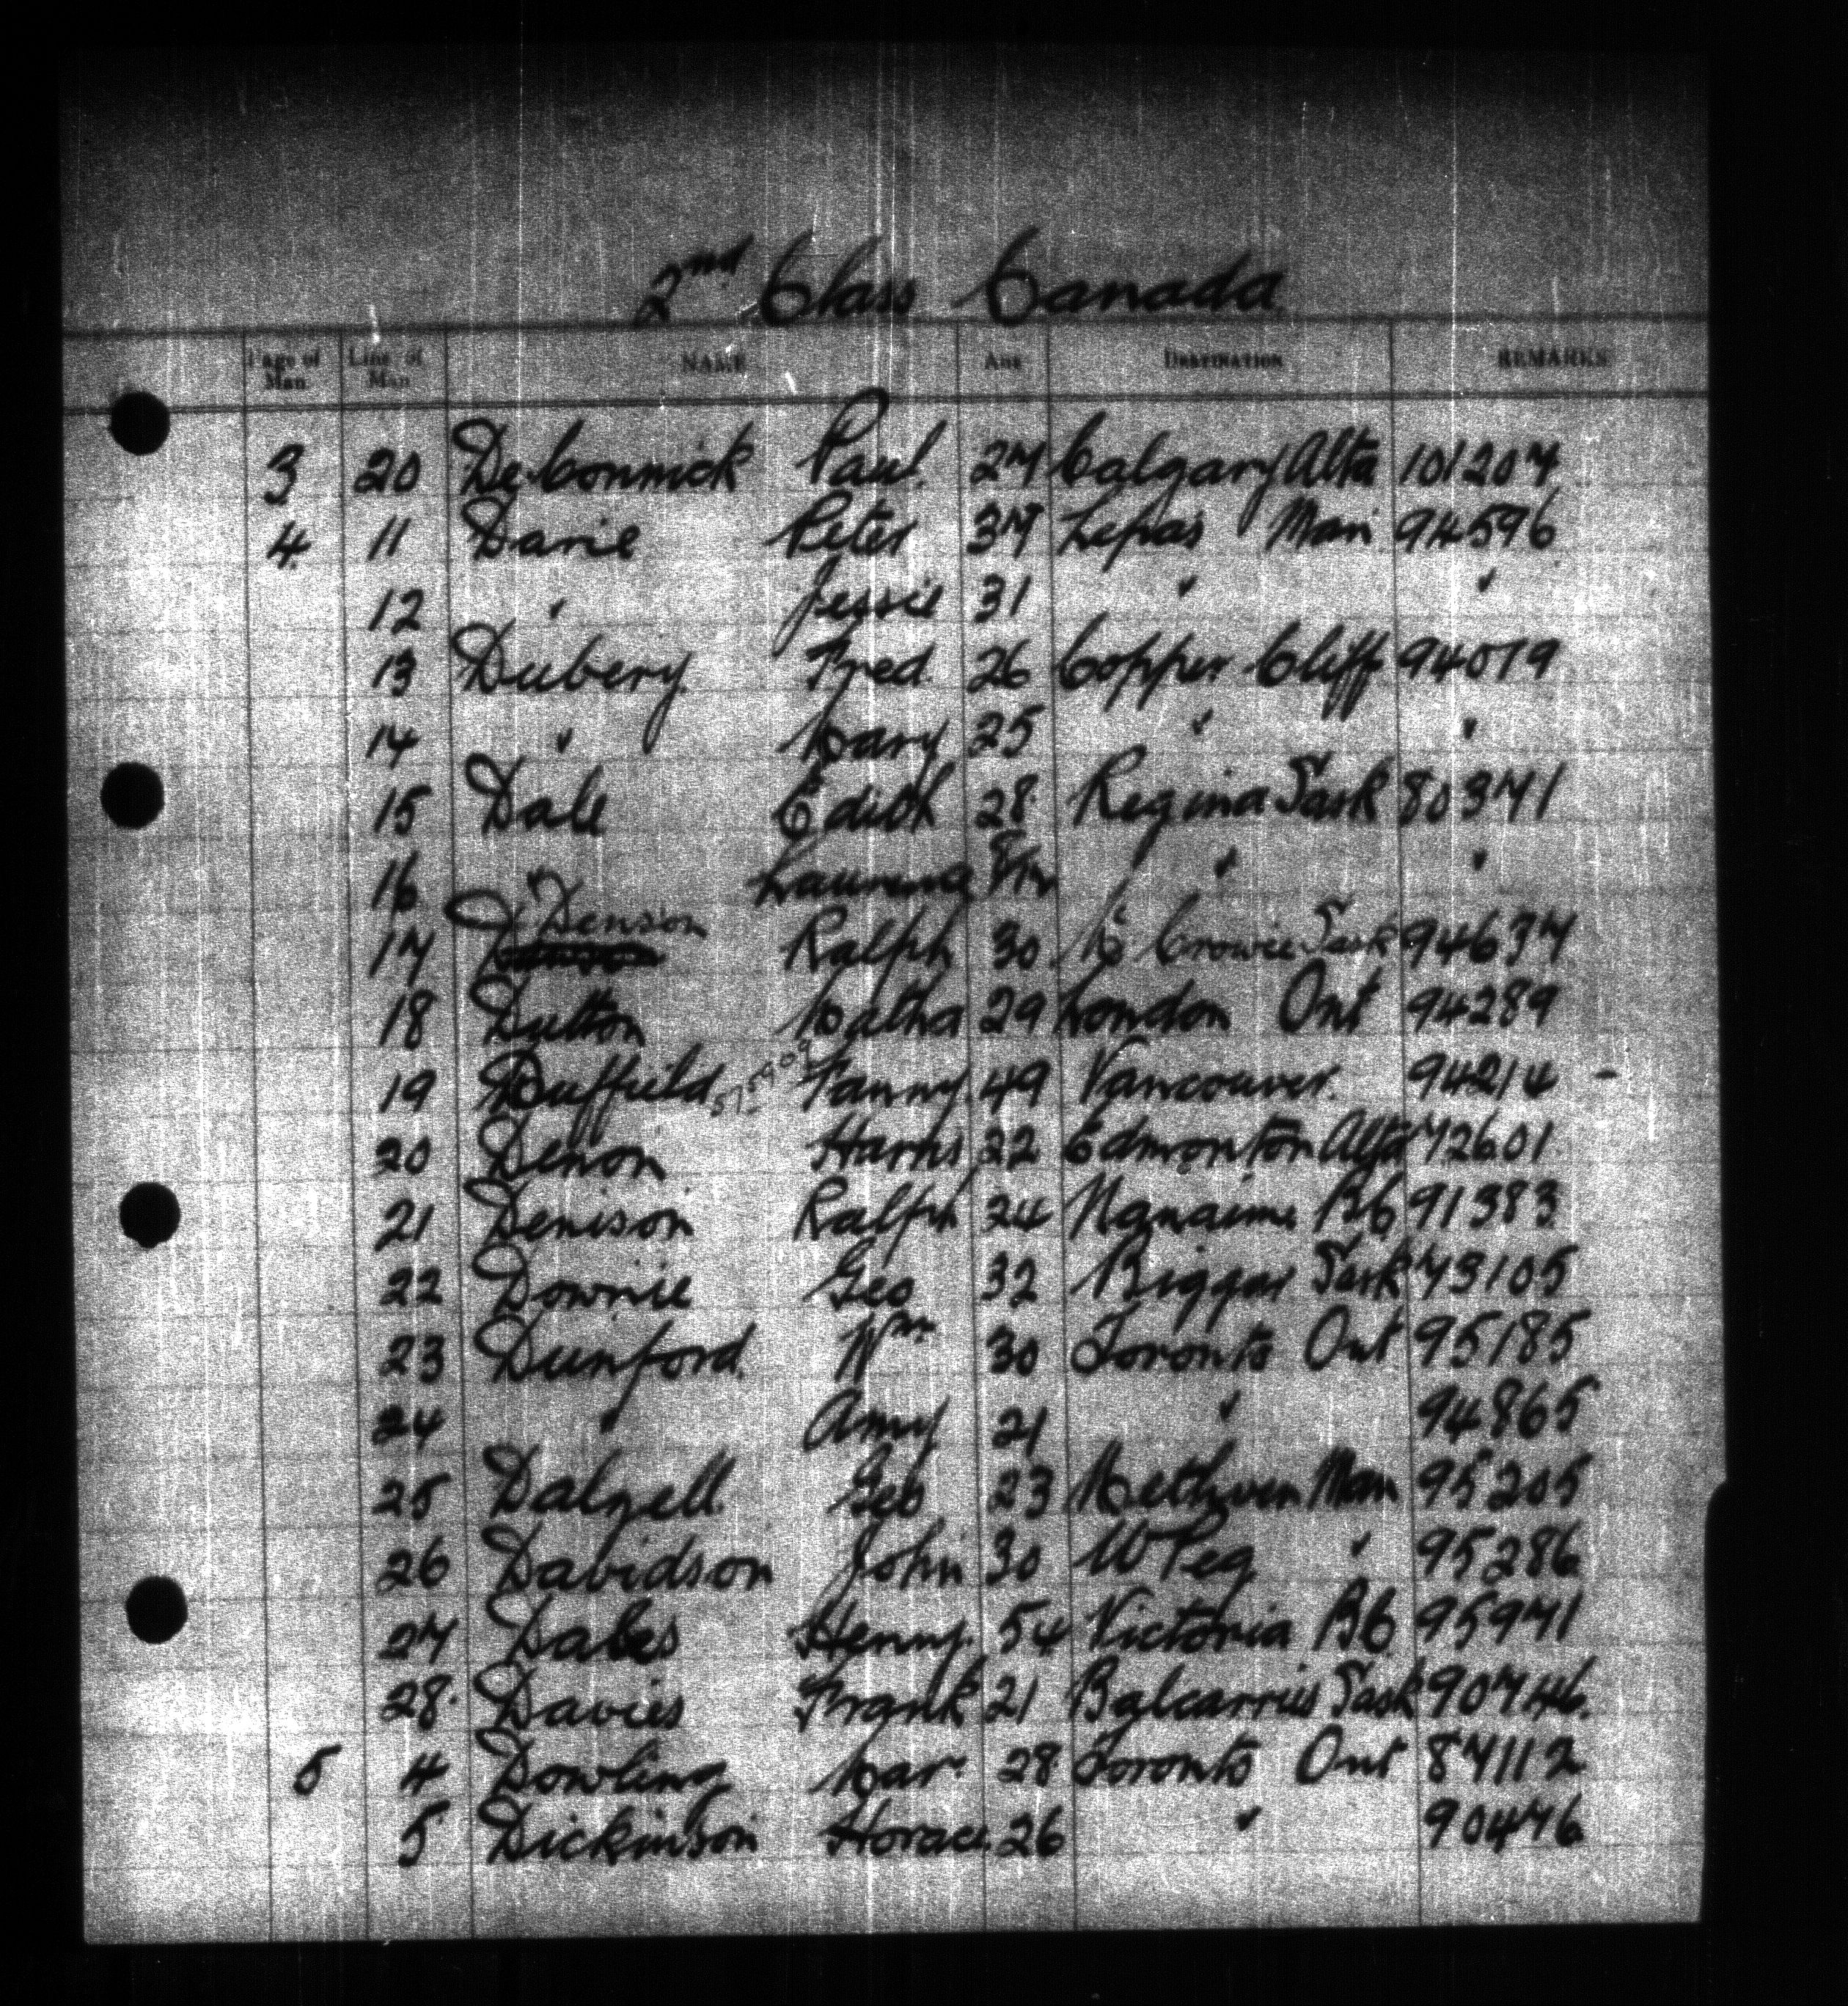 2nd Class Canada
Page of Man Line of Man NAME AGE DESTINATION REMARKS
3 20 DeConnick Paul 27 Calgary Alta 101207
4 11 Davie Peter 37 Lepas Man 94596
12 " Jessie 31 " "
13 Dubery Fred 26 Copper Cliff 94079
14 " Mary 25 " "
15 Dale Edith 28 Regina Sask 80371
16 " Laurena 8/12 " "
17 Denson Ralph 30 Mc Crowie Sask 94637
18 Dutton Matha 29 London Ont 94289
19 Duffield 575909 Fanny 49 Vancouver 94214 -
20 Denon Harris 22 Edmonton Alta 72601
21 Denison Ralph 24 Nanaimo BC 91383
22 Downie Geo 32 Biggar Sask 73105
23 Dunford Wm 30 Toronto Ont 95185
24 " Amy 21 " 94865
25 Dalzell Geo 23 Methven Man 95205
26 Davidson John 30 WPeg " 95286
27 Dales Henry 54 Victoria BC 95971
28 Davies Frank 21 Balcarries Sask 90746
5 4 Dowling Mar 28 Toronto Ont 87112
5 Dickinson Horace 26 " 90476